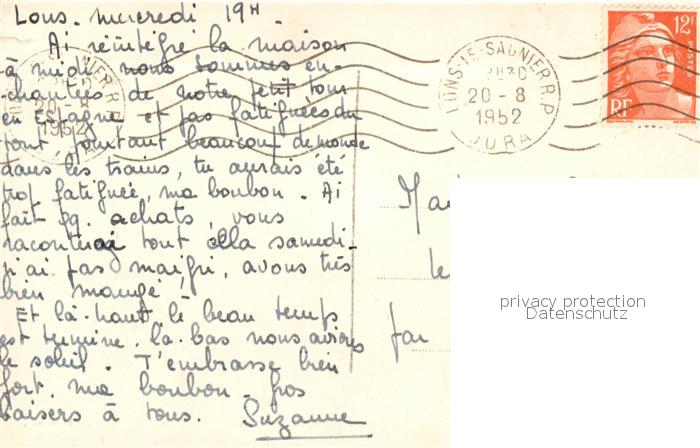 Lons. mercredi 19H.
Ai réintégré la maison
à midi, nous sommes en-
chantées de notre petit tour
en Espagne et pas fatiguées du
tout, pourtant beaucoup de monde
dans les trains, tu aurais été
trop fatiguée, ma boubou. Ai
fait qq. achats, vous
raconterai tout cela samedi-
j'ai pas maigri, avons très
bien mangé,
Et là-haut le beau temps
est terminé, là-bas nous avions
le soleil. T'embrasse bien
fort, ma boubou, gros
baisers à tous. Suzanne
LONS-LE-SAUNIER R.P.
20-8
1952
JURA
20-8
1952
12F
POSTES
RF
le
par
privacy protection
Datenschutz